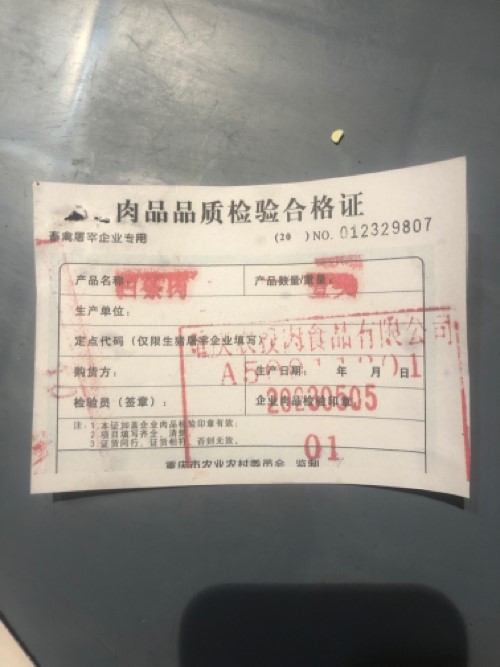 肉品品质检验合格证
畜禽屠宰企业专用
(20 ) NO. 012329807
产品名称:
白条肉
产品数量/重量:
生产单位:
定点代码(仅限生猪屠宰企业填写)
购货方:
生产日期: 年 月 日
检验员(签章):
企业肉品检验印章
农投肉食品有限公司
20230505
01
注: 1.本证加盖企业肉品检验印章有效;
2.项目填写齐全、清楚
3.证货同行、证货相符,否则无效。
重庆市农业农村委员会 监制